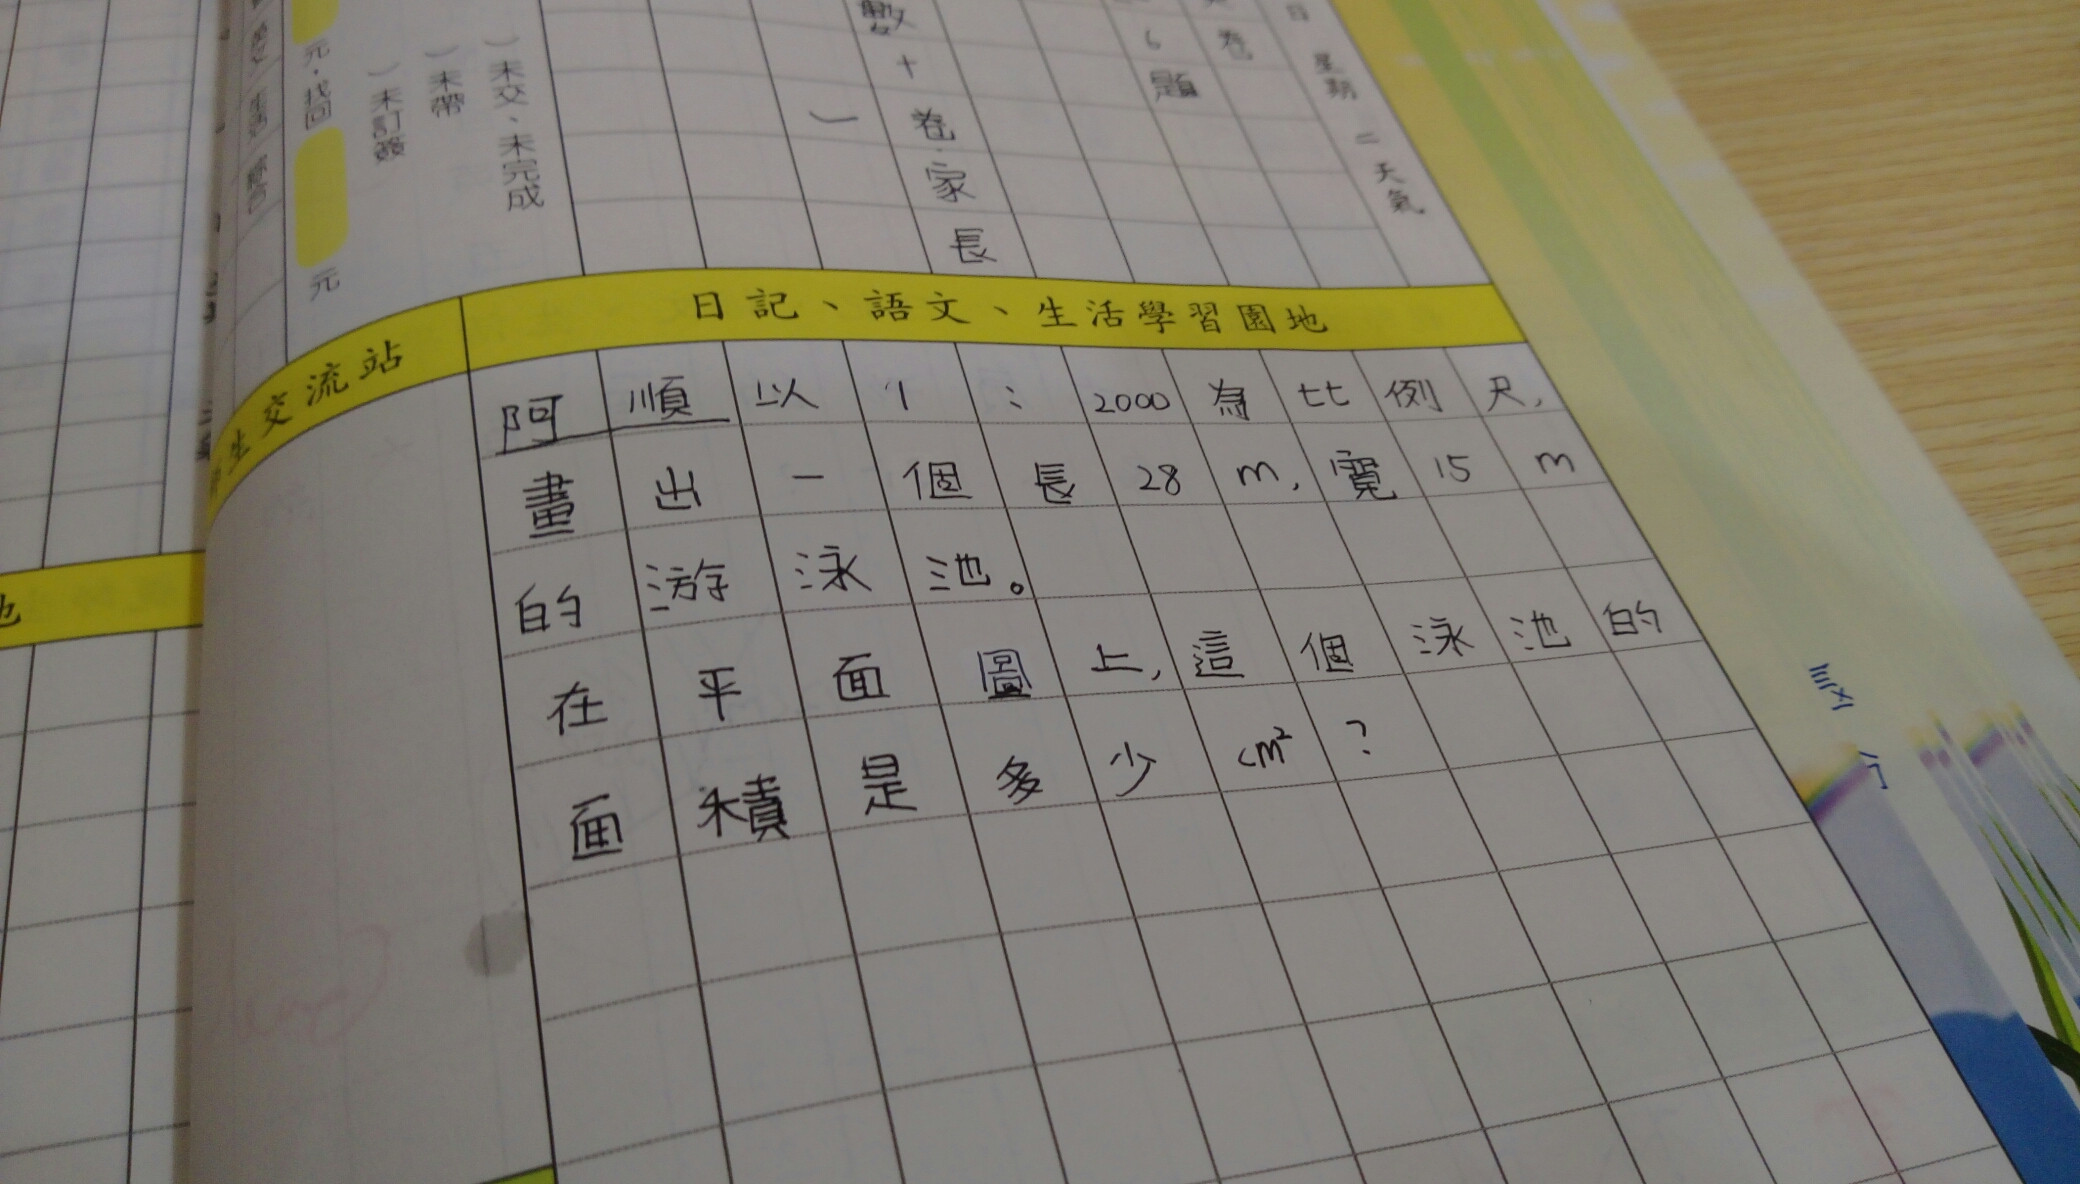 元,找回
元
)未訂簽
)未帶
)未交、未完成
數+卷.家長
)
6題
卷
日 星期二 天氣
日記、語文、生活學習園地
生交流站
阿順以1:2000為比例尺,
畫出一個長28m,寬15m
的游泳池。
在平面圖上,這個泳池的
面積是多少cm²?